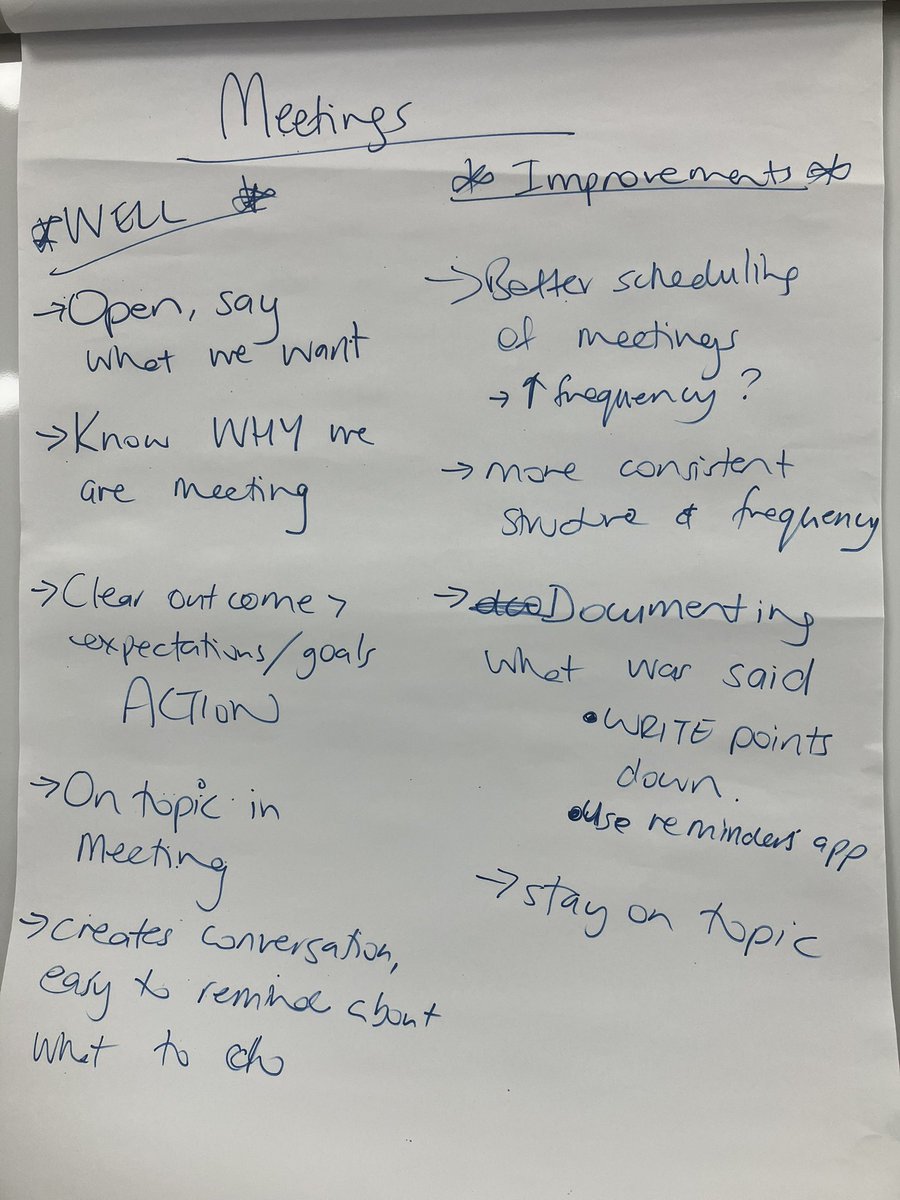 Meetings
*WELL *
→Open, say
what we want
→Know WHY we
are meeting
→Clear outcome >
expectations/goals
ACTION
→On topic in
Meeting
→creates conversation,
easy to remind about
what to do
* Improvements *
→Better scheduling
of meetings
→↑frequency?
→more consistent
structure & frequency
→Documenting
what was said
•WRITE points
down.
•Use reminders app
→stay on topic